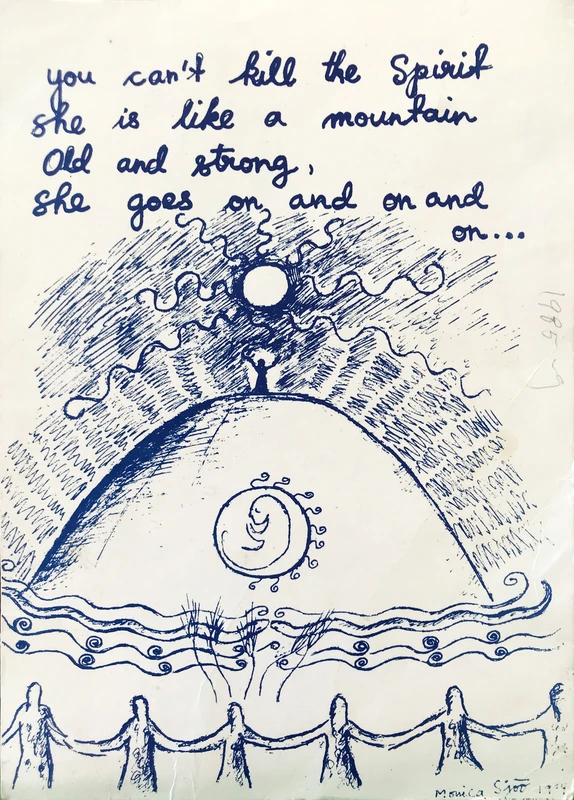 you can't kill the Spirit
she is like a mountain
Old and strong,
she goes on and on and
on...
1985
Monica Sjöö